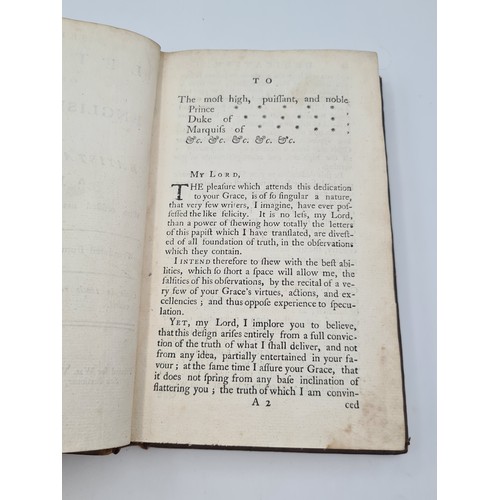 TO
The moſt high, puiſſant, and noble
Prince * * * * *,
Duke of * * * * * *,
Marquiſs of * * * * * *,
&c. &c. &c. &c. &c.
MY LORD,
THE pleaſure which attends this dedication
to your Grace, is of ſo ſingular a nature,
that very few writers, I imagine, have ever poſ-
ſeſſed the like felicity. It is no leſs, my Lord,
than a power of ſhewing how totally the letters
of this papiſt which I have tranſlated, are diveſt-
ed of all foundation of truth, in the obſervations
which they contain.
I INTEND therefore to ſhew with the beſt abi-
lities, which ſo ſhort a ſpace will allow me, the
falſities of his obſervations, by the recital of a ve-
ry few of your Grace's virtues, actions, and ex-
cellencies; and thus oppoſe experience to ſpecu-
lation.
YET, my Lord, I implore you to believe,
that this deſign ariſes entirely from a full convic-
tion of the truth of what I ſhall deliver, and not
from any idea, partially entertained in your fa-
vour; at the ſame time I aſſure your Grace, that
it does not ſpring from any baſe inclination of
flattering you; the truth of which I am convin-
A 2 ced